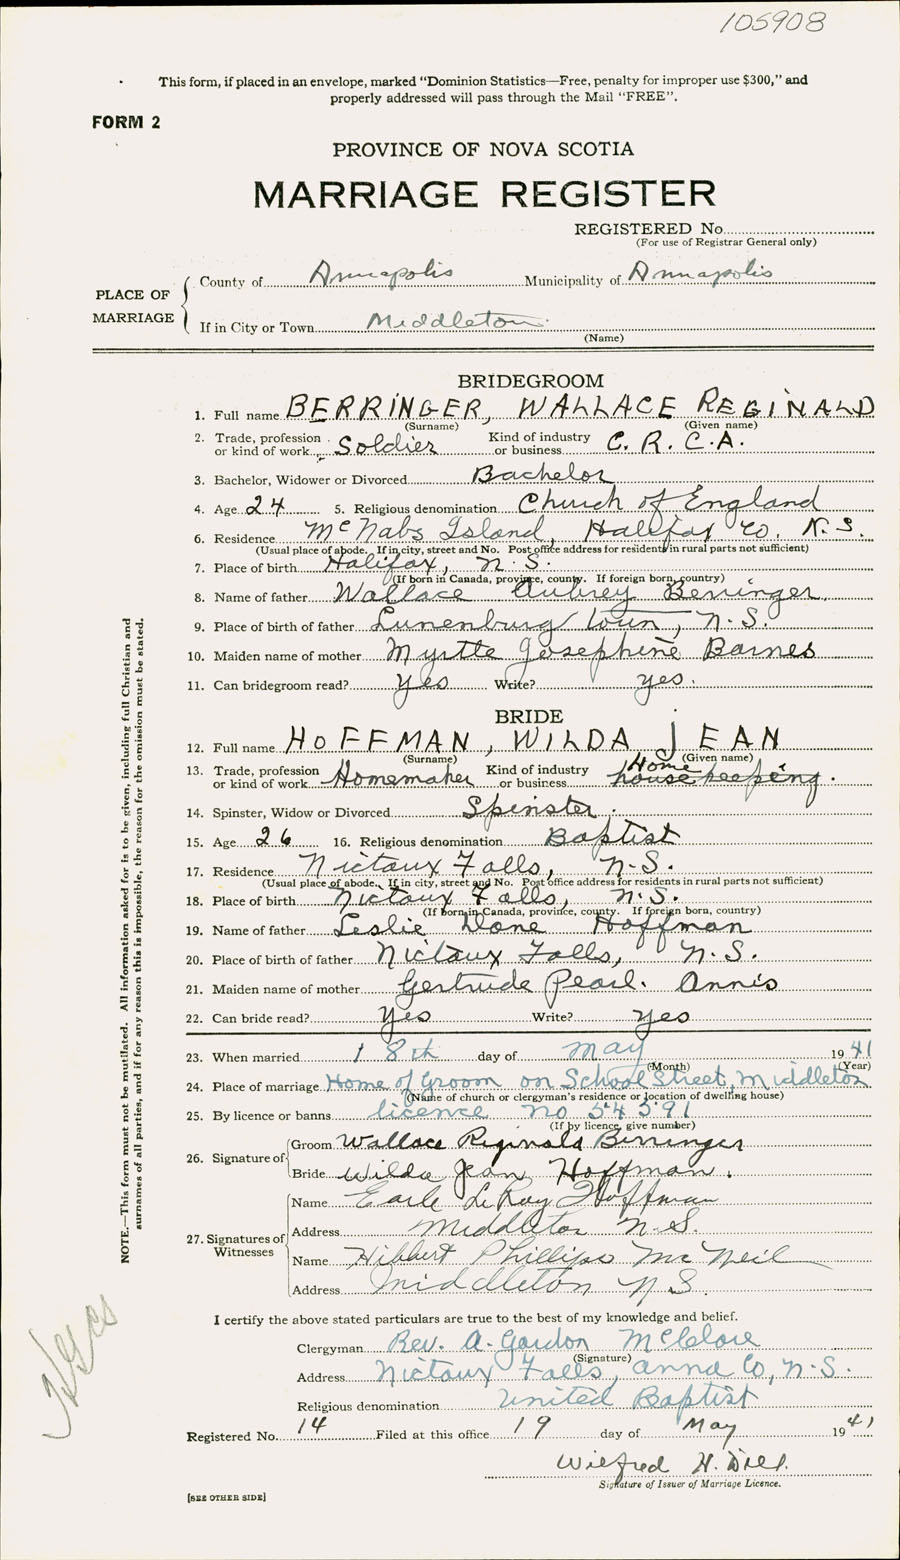 105908
This form, if placed in an envelope, marked “Dominion Statistics—Free, penalty for improper use $300,” and
properly addressed will pass through the Mail “FREE”.
FORM 2
PROVINCE OF NOVA SCOTIA
MARRIAGE REGISTER
REGISTERED No
(For use of Registrar General only)
PLACE OF MARRIAGE
County of Annapolis Municipality of Annapolis
If in City or Town Middleton
(Name)
BRIDEGROOM
1. Full name BERRINGER, WALLACE REGINALD
(Surname) (Given name)
2. Trade, profession or kind of work Soldier Kind of industry or business C.R.C.A.
3. Bachelor, Widower or Divorced Bachelor
4. Age 24 5. Religious denomination Church of England
6. Residence McNabs Island, Halifax Co. N.S.
(Usual place of abode. If in city, street and No. Post office address for residents in rural parts not sufficient)
7. Place of birth Halifax, N.S.
(If born in Canada, province, county. If foreign born, country)
8. Name of father Wallace Aubrey Berringer
9. Place of birth of father Lunenburg Town, N.S.
10. Maiden name of mother Myrtle Josephine Barnes
11. Can bridegroom read? yes Write? yes.
BRIDE
12. Full name HOFFMAN, WILDA JEAN
(Surname) (Given name)
13. Trade, profession or kind of work Homemaker Kind of industry or business Home housekeeping.
14. Spinster, Widow or Divorced Spinster.
15. Age 26 16. Religious denomination Baptist
17. Residence Nictaux Falls, N.S.
(Usual place of abode. If in city, street and No. Post office address for residents in rural parts not sufficient)
18. Place of birth Nictaux Falls, N.S.
(If born in Canada, province, county. If foreign born, country)
19. Name of father Leslie Hoffman
20. Place of birth of father Nictaux Falls, N.S.
21. Maiden name of mother Gertrude Pearl. Annis
22. Can bride read? Yes Write? yes
23. When married 18th day of May 1941
(Month) (Year)
24. Place of marriage Home of Groom on School Street, Middleton
(Name of church or clergyman's residence or location of dwelling house)
25. By licence or banns licence no 54591
(If by licence, give number)
26. Signature of
Groom Wallace Reginald Berringer
Bride Wilda Jean Hoffman.
27. Signatures of Witnesses
Name Earle LeRoy Hoffman
Address Middleton N.S.
Name Hibbert Phillips McNeil
Address Middleton N.S.
I certify the above stated particulars are true to the best of my knowledge and belief.
Clergyman Rev. A. Gordon
(Signature)
Address Nictaux Falls, Anna Co, N.S.
Religious denomination United Baptist
Registered No. 14 Filed at this office 19 day of May 1941
Wilfred H.
Signature of Issuer of Marriage Licence.
[SEE OTHER SIDE]
NOTE.—This form must not be mutilated. All information asked for is to be given, including full Christian and
surnames of all parties, and if for any reason this is impossible, the reason for the omission must be stated.